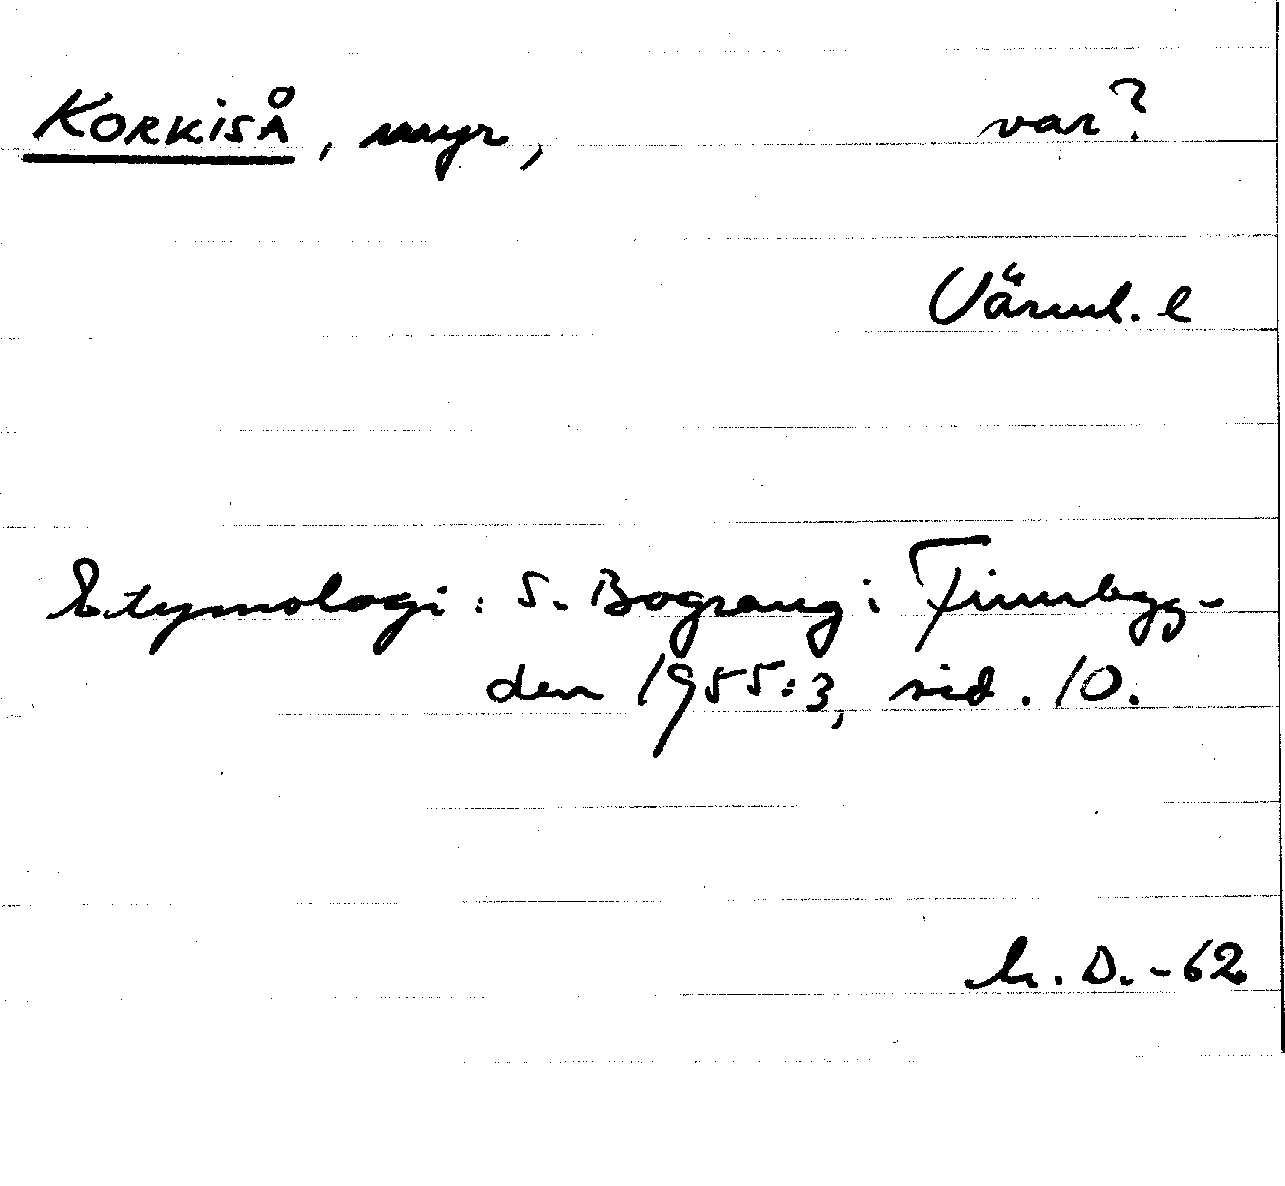 KORKISÅ, myr, var?
Värml. l
Etymologi: S. Bograng i Finnbygg-
den 1955:3, sid. 10.
D. -62